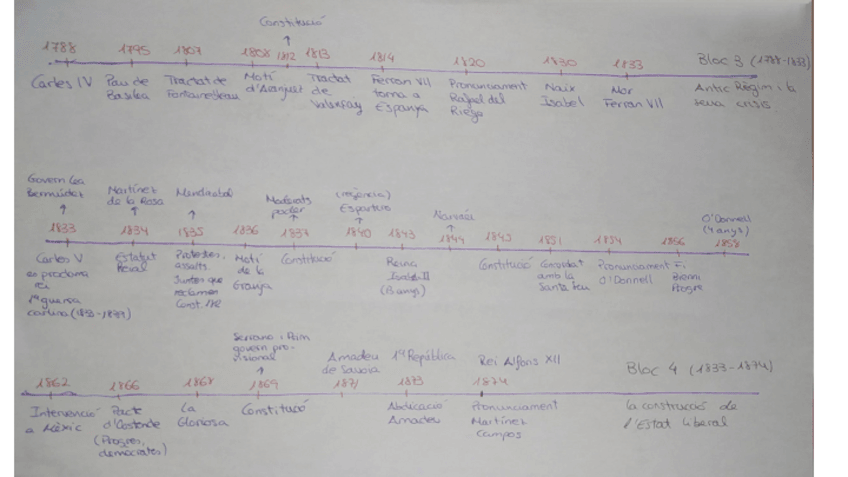 Constitució
1788 1795 1807 1808 1812 1813 1814 1820 1830 1833 Bloc 3 (1788-1833)
Carles IV Pau de Tractat de Motí Tractat Ferran VII Pronunciament Naix Mor Antic Règim i la
Basilea Fontainebleau d'Aranjuez de torna a Rafael del Isabel Ferran VII seua crisis.
Valençay Espanya Riego
Govern Cea Martínez Mendizabal Moderats (regència) Narváez O'Donnell
Bermúdez de la Rosa poder Espartero (4 anys)
1833 1834 1835 1836 1837 1840 1843 1844 1845 1851 1854 1856 1858
Carles V Estatut Protestes, Motí Constitució Reina Constitució Concordat Pronunciament Fi
es proclama Reial assalts de la Isabel II amb la O'Donnell Bienni
rei Juntes que Granja (13 anys) Santa Seu Progre.
1ª guerra reclamen
carlina Const.
Serrano i Prim
govern pro-
visional
Amadeu 1ª República Rei Alfons XII
de Savoia
1862 1866 1868 1869 1871 1873 1874 Bloc 4 (1833-1874)
Intervenció Pacte La Constitució Abdicació Pronunciament La construcció de
a Mèxic d'Ostende Gloriosa Amadeu Martínez l'Estat liberal
(Progres, Campos
demòcrates)